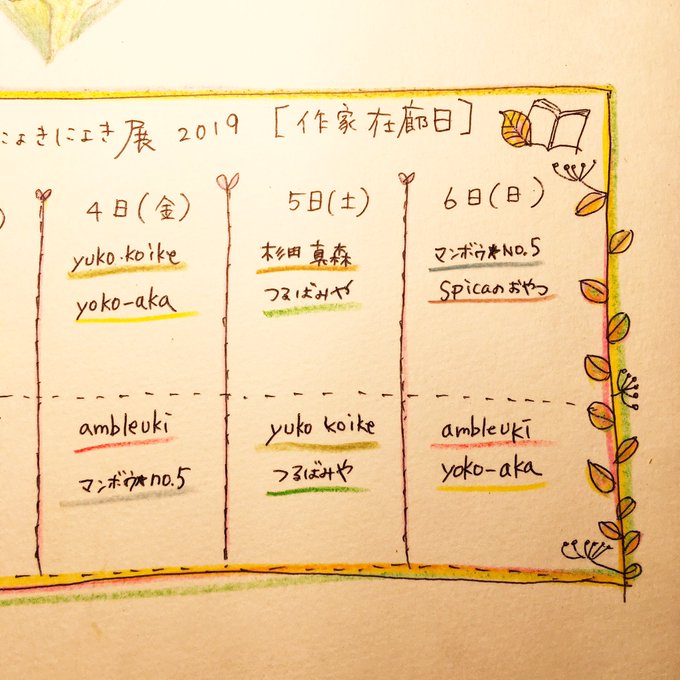 にょきにょき展 2019 [作家在廊日]
)
4日(金)
5日(土)
6日(日)
yuko.koike
杉田真森
マンボウ★NO.5
yoko-aka
つるばみや
Spicaのおやつ
ambleuki
yuko koike
ambleuki
マンボウ★no.5
つるばみや
yoko-aka